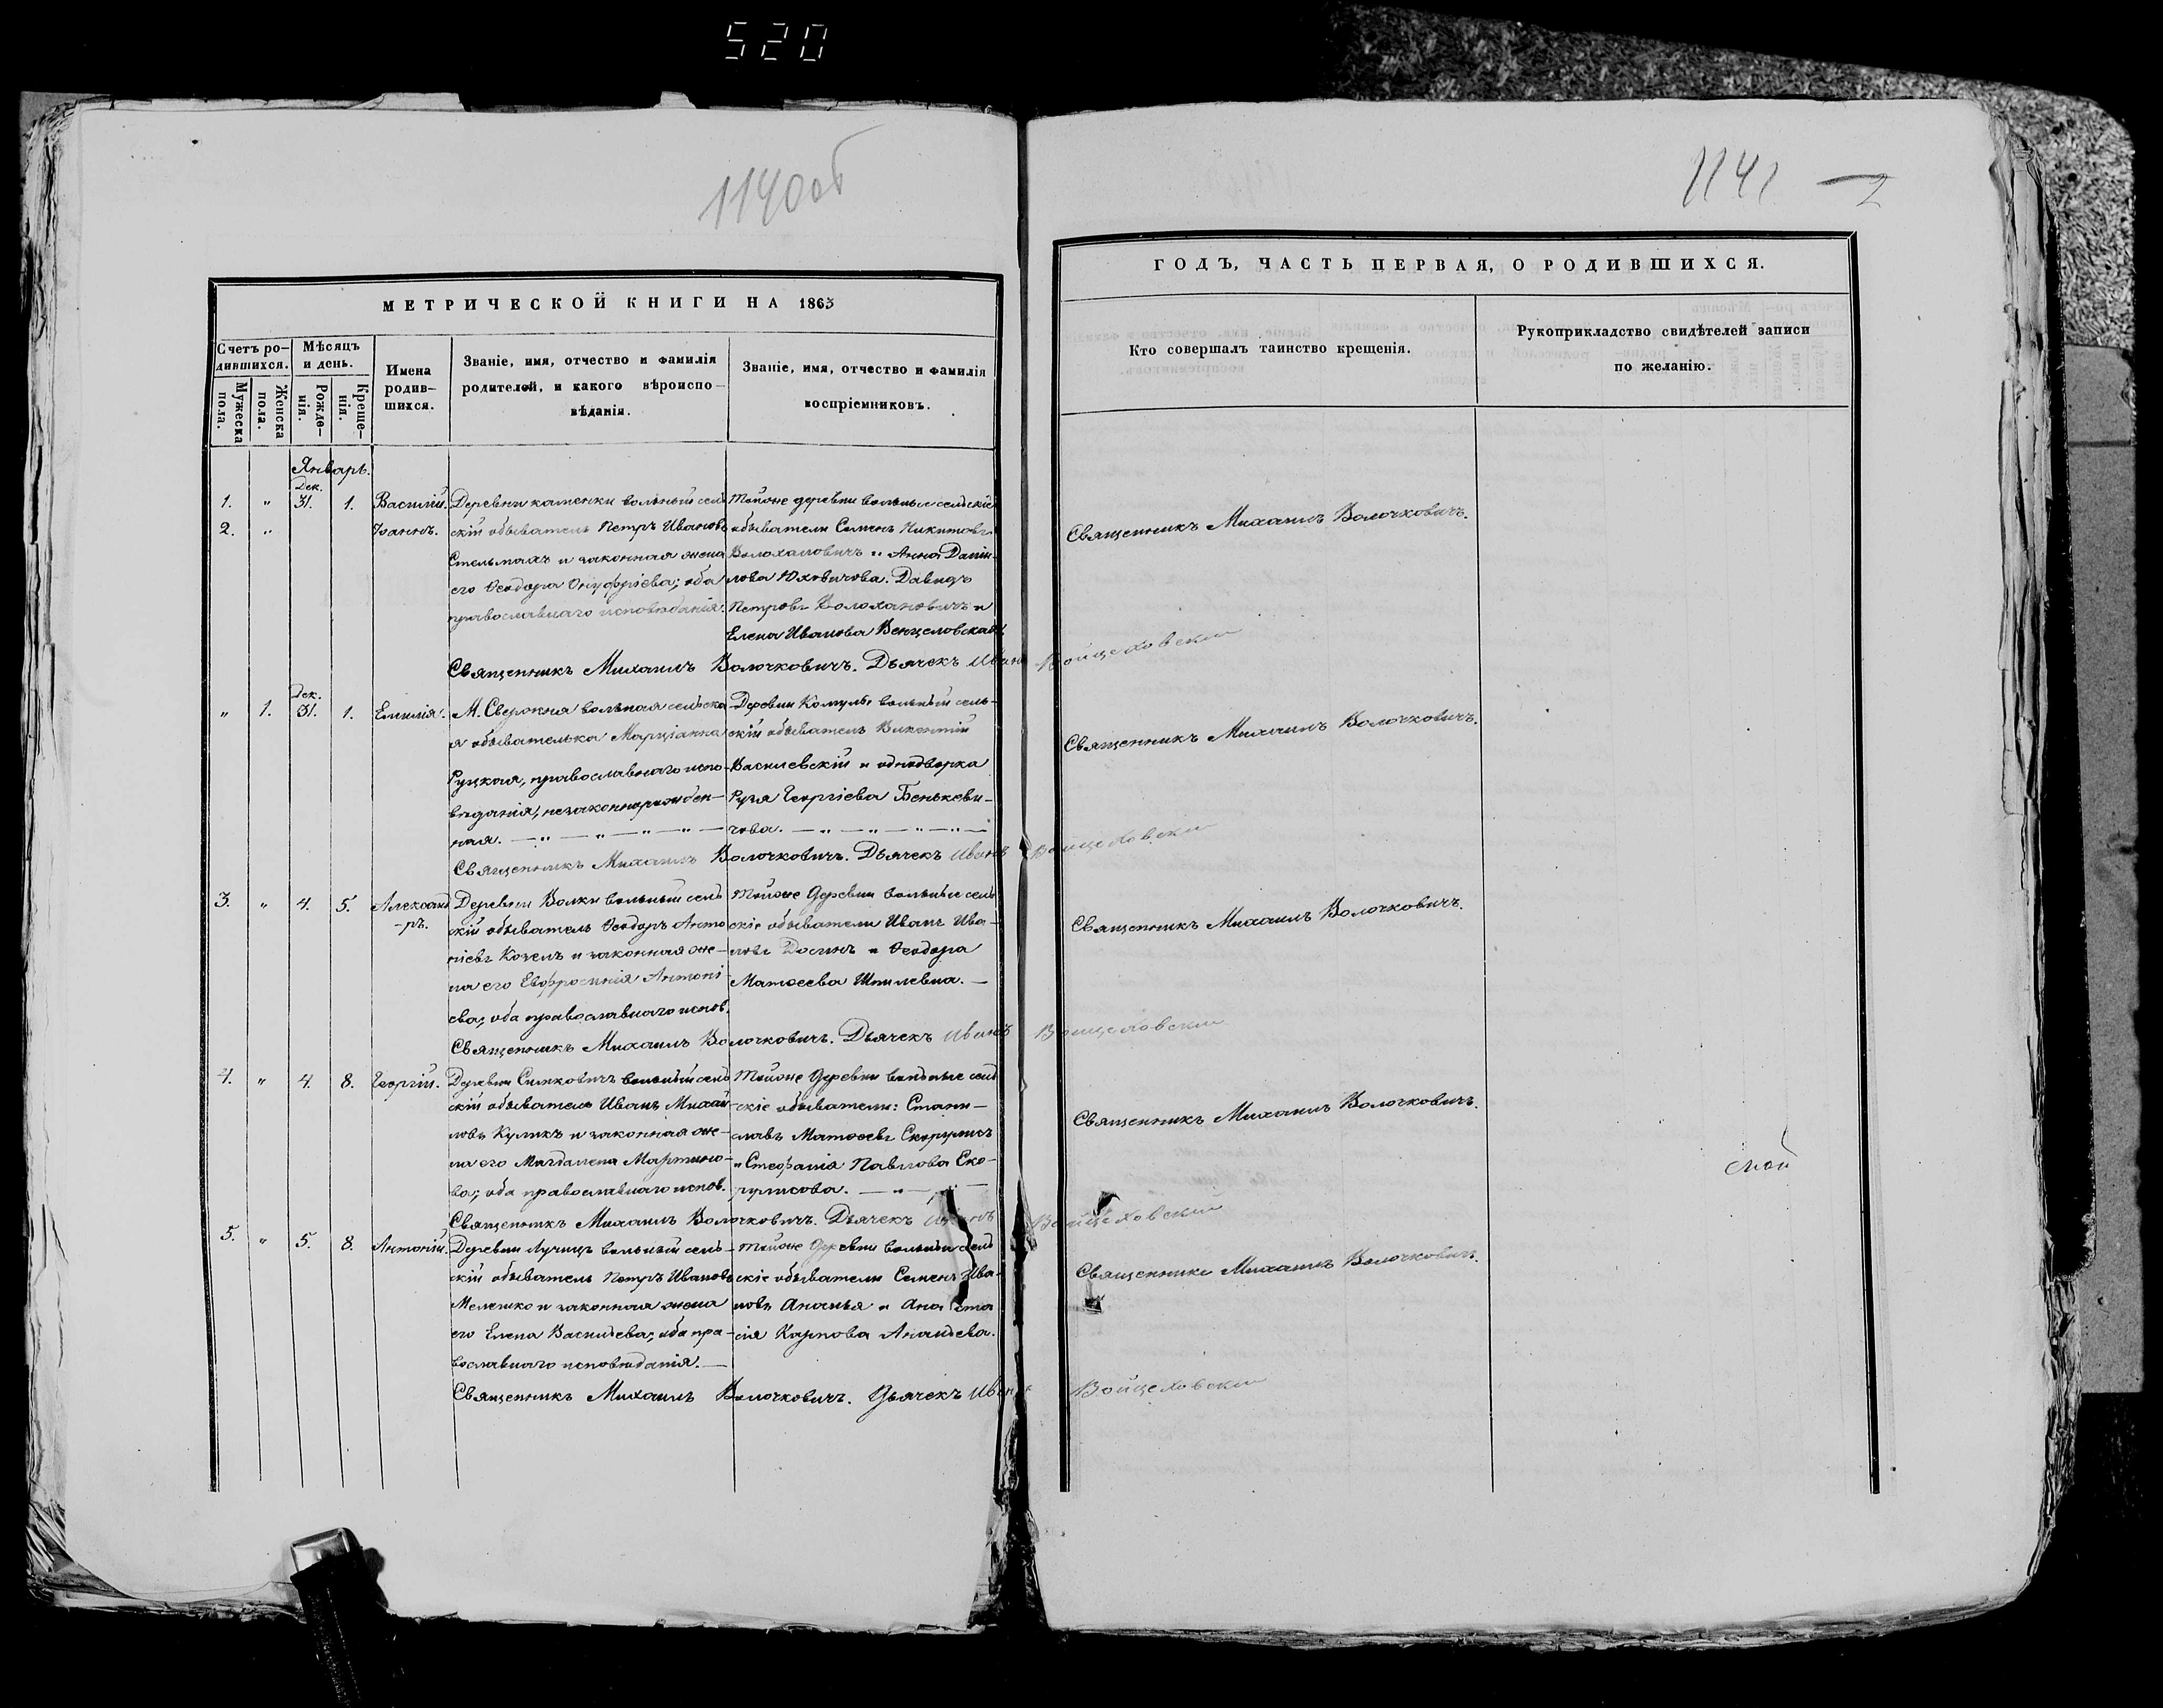 520
1140 об
1141 — 2
МЕТРИЧЕСКОЙ КНИГИ НА 1863
ГОДЪ, ЧАСТЬ ПЕРВАЯ, О РОДИВШИХСЯ.
Счетъ ро-
дившихся.
Мужеска
пола.
Женска
пола.
Мѣсяцъ
и день.
Рожде-
нія.
Креще-
нія.
Имена
родив-
шихся.
Званіе, имя, отчество и фамилія
родителей, и какого вѣроиспо-
вѣданія.
Званіе, имя, отчество и фамилія
воспріемниковъ.
Кто совершалъ таинство крещенія.
Рукоприкладство свидѣтелей записи
по желанію.
Январь.
Дек.
1. " 31. 1. Василій.
2. " Іоаннъ.
Деревни каменки вольный сель
скій обыватель Петръ Ивановъ
Стельмахъ и законная жена
его Ѳеодора Онуфріева; оба
православнаго исповѣданія.
Тойже деревни вольные сельскіе
обыватели Семенъ Никитовъ
Волоханович и Анна Даніи-
лова Юховичова. Давидъ
Петровъ Волохановичъ и
Елена Иванова Венцеловская.
Священникъ Михаилъ Волочковичъ.
Священникъ Михаилъ Волочковичъ. Дьячекъ Иванъ Войцеховскій
Дек.
" 1. 31. 1. Емилія.
М. Свержня вольная сельска
я обывателька Марціанна
Руцкая, православнаго испо-
вѣданія, незаконнорожден-
ная. — " — " — " — " —
Деревни вольный сель-
скій обыватель Викентій
Василевскій и однодворка
Рузя Георгіева Бенькеви-
чова. — " — " — " — " —
Священникъ Михаилъ Волочковичъ.
Священникъ Михаилъ Волочковичъ. Дьячекъ Иванъ Войцеховскій
3. " 4. 5. Александ
-ръ.
Деревни Волки вольный сель
скій обыватель Ѳеодоръ Анто
ніевъ Козелъ и законная же-
на его Евфросинія Антоні-
ева; оба православнаго испов.
Тойже Деревни вольные сель
скіе обыватели Иванъ Ива-
новъ и Ѳеодора
Матѳеева Шпилевна. —
Священникъ Михаилъ Волочковичъ.
Священникъ Михаилъ Волочковичъ. Дьячекъ Иванъ Войцеховскій
4. " 4. 8. Георгій.
Деревни Синковичъ вольный сель
скій обыватель Иванъ Михай-
ловъ Куликъ и законная же-
на его Магдалена Мартино-
ва; оба православнаго испов.
Тойже Деревни вольные сель
скіе обыватели: Стани-
славъ Матѳеевъ Скорулисъ
и Стефанія Павлова Ско-
рулисова. — " — " —
Священникъ Михаилъ Волочковичъ.
Священникъ Михаилъ Волочковичъ. Дьячекъ Иванъ Войцеховскій
5. " 5. 8. Антоній.
Деревни Лучицъ вольный сель-
скій обыватель Петръ Ивановъ
Мелешко и законная жена
его Елена Васильева; оба пра-
вославнаго исповѣданія. —
Тойже Деревни вольные сель
скіе обыватели Семенъ Ива-
новъ Ананья и Анаста
сія Карпова Ананьева.
Священникъ Михаилъ Волочковичъ.
Священникъ Михаилъ Волочковичъ. Дьячекъ Иванъ Войцеховскій